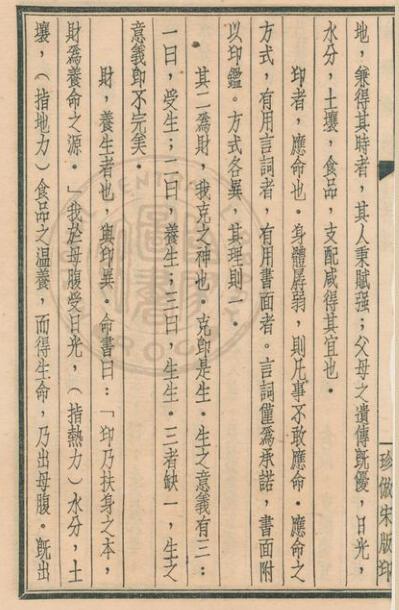 地，兼得其時者，其人秉賦强；父母之遺傳旣優，日光，
水分，土壤，食品，支配咸得其宜也．
印者，應命也．身體孱弱，則凡事不敢應命．應命之
方式，有用言詞者，有用書面者。言詞僅爲承諾，書面附
以印鑑。方式各異，其理則一．
其二爲財，我克之神也．克卽是生．生之意義有三：
一曰，受生；二曰，養生；三曰，生生．三者缺一，生之
意義卽不完矣．
財，養生者也，與印異．命書曰：「印乃扶身之本，
財爲養命之源．」我於母腹受日光，（指熱力）水分，土
壤，（指地力）食品之温養，而得生命，乃出母腹。旣出
珍倣宋版印